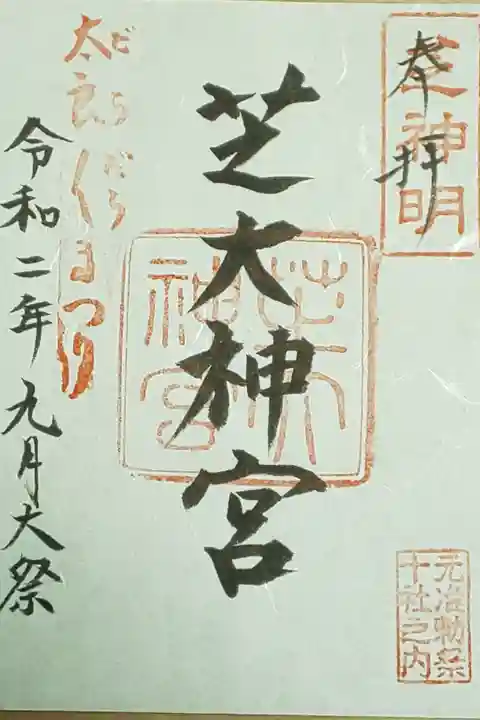 奉拝
芝神明
芝大神宮
芝大
神宮
元治勅祭
十社之内
だらだら
太郎くまつり
令和二年九月大祭